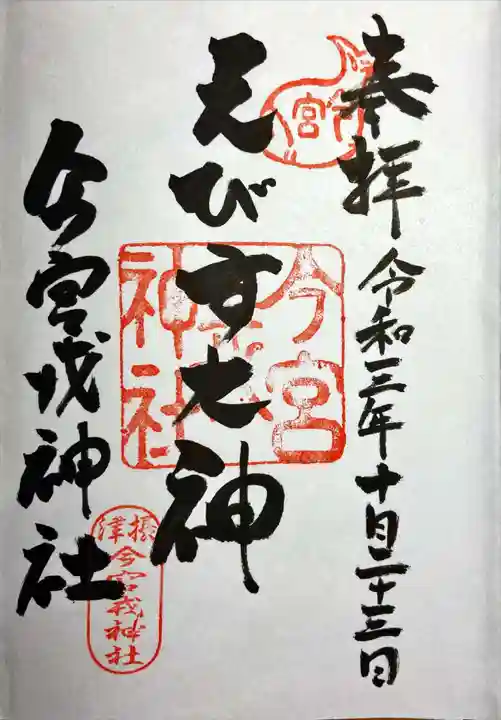 奉拝
令和三年十月二十三日
宮
えびす大神
今宮戎神社
今宮戎神社
攝津
今宮戎神社